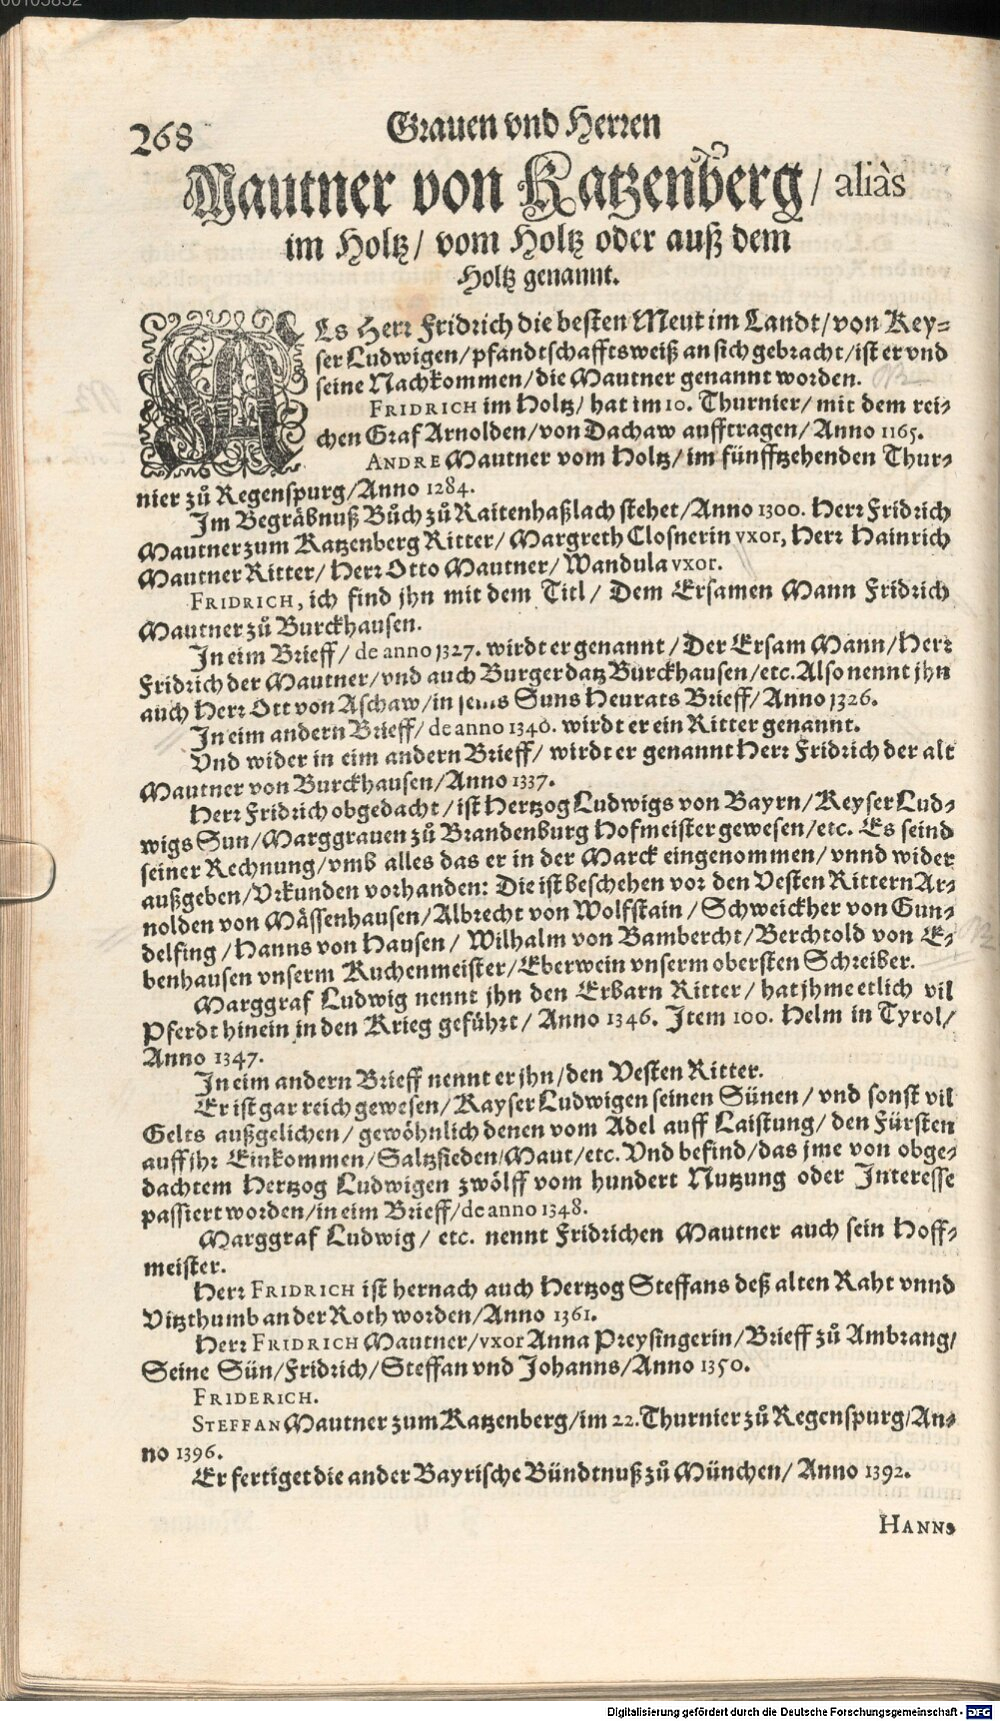 268
Grauen vnd Herren
Mautner von Katzenberg/ aliàs
im Holtz/ vom Holtz oder auß dem
Holtz genannt.
ALs Herr Fridrich die besten Meut im Landt/ von Key-
ser Ludwigen/ pfandtschafftsweiß an sich gebracht/ ist er vnd
seine Nachkommen/ die Mautner genannt worden.
FRIDRICH im Holtz/ hat im 10. Thurnier/ mit dem rei-
chen Graf Arnolden/ von Dachaw aufftragen/ Anno 1165.
ANDRE Mautner vom Holtz/ im fünfftzehenden Thur-
nier zů Regenspurg/ Anno 1284.
Im Begräbnuß Bůch zů Raitenhaßlach stehet/ Anno 1300. Herr Fridrich
Mautner zum Katzenberg Ritter/ Margreth Closnerin vxor, Herr Hainrich
Mautner Ritter/ Herr Otto Mautner/ Wandula vxor.
FRIDRICH, ich find jhn mit dem Titl/ Dem Ersamen Mann Fridrich
Mautner zů Burckhausen.
In eim Brieff/ de anno 1327. wirdt er genannt/ Der Ersam Mann/ Herr
Fridrich der Mautner/ vnd auch Burger datz Burckhausen/ etc. Also nennt jhn
auch Herr Ott von Aschaw/ in Suns Heurats Brieff/ Anno 1326.
In eim andern Brieff/ de anno 1340. wirdt er ein Ritter genannt.
Vnd wider in eim andern Brieff/ wirdt er genannt Herr Fridrich der alt
Mautner von Burckhausen/ Anno 1337.
Herr Fridrich obgedacht/ ist Hertzog Ludwigs von Bayrn/ Keyser Lud-
wigs Sun/ Marggrauen zů Brandenburg Hofmeister gewesen/ etc. Es seind
seiner Rechnung/ vmb alles das er in der Marck eingenommen/ vnnd wider
außgeben/ Vrkunden vorhanden: Die ist beschehen vor den Vesten Rittern Ar-
nolden von Mässenhausen/ Albrecht von Wolfstain/ Schweickher von Gun-
delfing/ Hanns von Hausen/ Wilhalm von Bambercht/ Berchtold von E-
benhausen vnserm Kuchenmeister/ Eberwein vnserm obersten Schreiber.
Marggraf Ludwig nennt jhn den Erbarn Ritter/ hat jhme etlich vil
Pferdt hinein in den Krieg geführt/ Anno 1346. Item 100. Helm in Tyrol/
Anno 1347.
In eim andern Brieff nennt er jhn/ den Vesten Ritter.
Er ist gar reich gewesen/ Kayser Ludwigen seinen Sünen/ vnd sonst vil
Gelts außgelichen/ gewöhnlich denen vom Adel auff Laistung/ den Fürsten
auff jhr Einkommen/ Saltzsieden/ Maut/ etc. Vnd befind/ das jme von obge-
dachtem Hertzog Ludwigen zwölff vom hundert Nutzung oder Interesse
passiert worden/ in eim Brieff/ de anno 1348.
Marggraf Ludwig/ etc. nennt Fridrichen Mautner auch sein Hoff-
meister.
Herr FRIDRICH ist hernach auch Hertzog Steffans deß alten Raht vnnd
Vitzthumb an der Roth worden/ Anno 1361.
Herr FRIDRICH Mautner/ vxor Anna Preysingerin/ Brieff zů Ambrang/
Seine Sün/ Fridrich/ Steffan vnd Johanns/ Anno 1350.
FRIDERICH.
STEFFAN Mautner zum Katzenberg/ im 22. Thurnier zů Regenspurg/ An-
no 1396.
Er fertiget die ander Bayrische Bündtnuß zů München/ Anno 1392.
HANNS
Digitalisierung gefördert durch die Deutsche Forschungsgemeinschaft - DFG